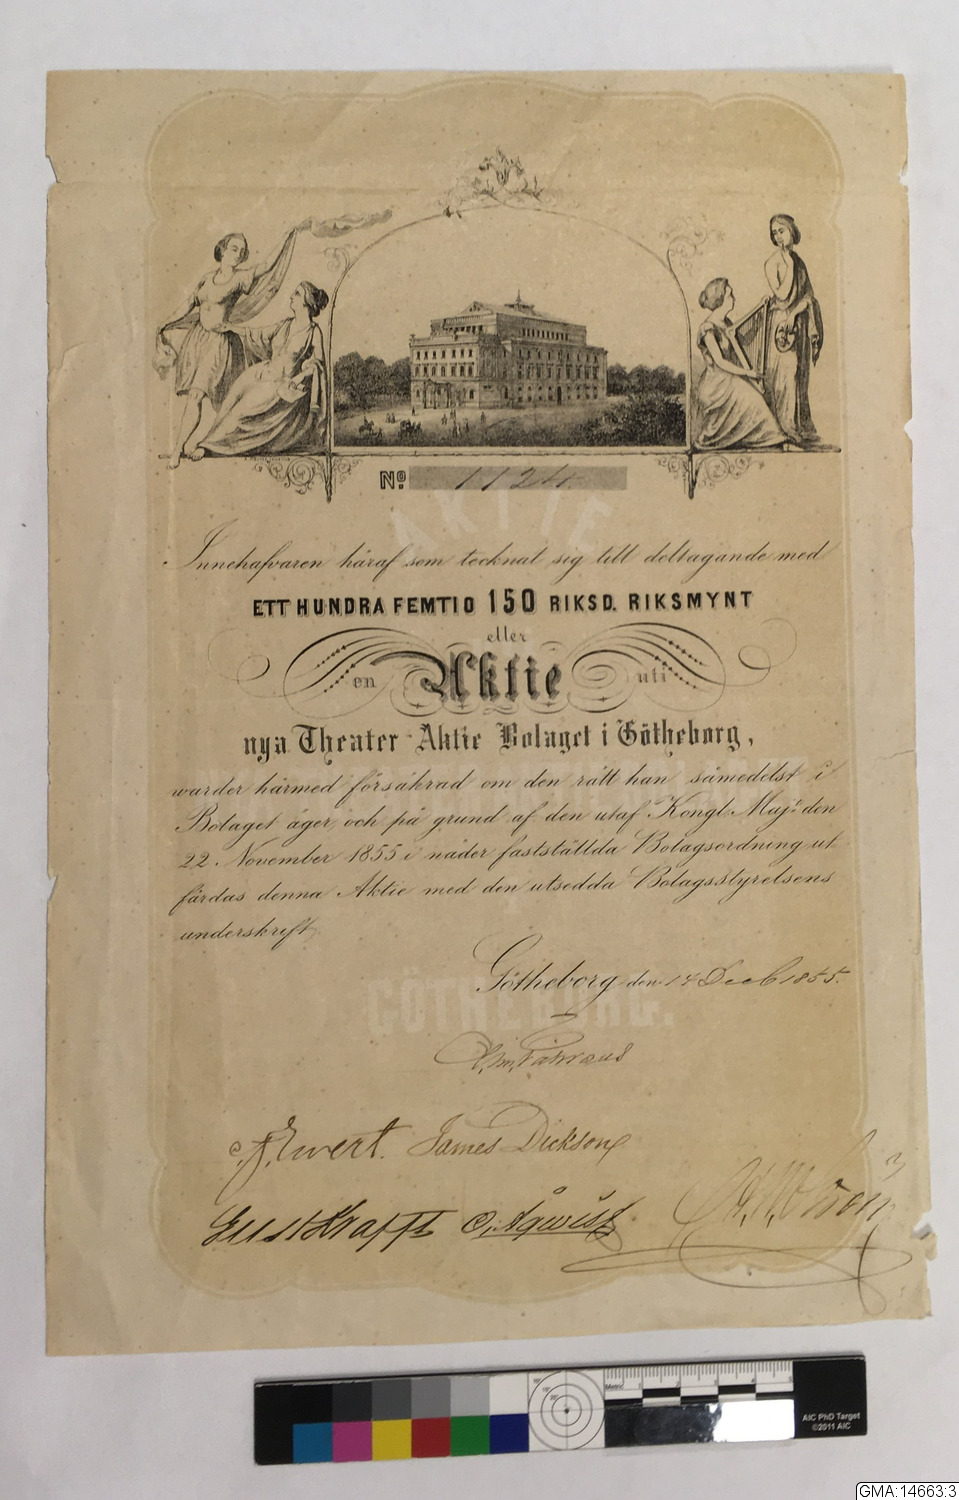 No. 1124
AKTIE
Innehafvaren häraf som tecknat sig till deltagande med
ETT HUNDRA FEMTIO 150 RIKSD. RIKSMYNT
eller
en Aktie uti
nya Theater-Aktie Bolaget i Götheborg,
warder härmed försäkrad om den rätt han sämedelst i
Bolaget äger, och på grund af den utaf Kongl. Maj:t den
22. November 1855 i nåder fastställda Bolagsordning ut
färdas denna Aktie med den utsedda Bolagsstyrelsens
underskrift,
Götheborg den 14 Decb 1855.
GÖTHEBORG.
Fåhraeus
Ewert. James Dickson
Gust Krafft C. Åqwist
AIC PhD Target
©2011 AIC
GMA:14663:3